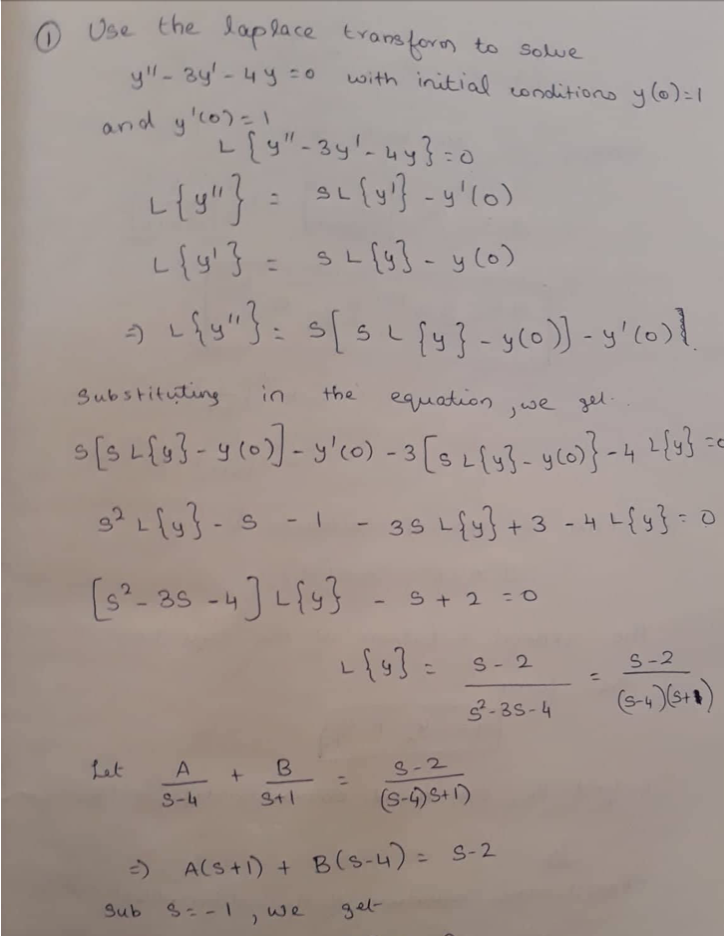 ① Use the laplace transform to solve
y'' - 3y' - 4y = 0 with initial conditions y(0)=1
and y'(0)=1
L{y'' - 3y' - 4y} = 0
L{y''} = sL{y'} - y'(0)
L{y'} = sL{y} - y(0)
⇒ L{y''} = s[sL{y} - y(0)] - y'(0)
Substituting in the equation, we get.
s[sL{y} - y(0)] - y'(0) - 3[sL{y} - y(0)} - 4L{y} = 0
s² L{y} - s - 1 - 3s L{y} + 3 - 4 L{y} = 0
[s² - 3s - 4] L{y} - s + 2 = 0
L{y} = s-2 / s²-3s-4 = s-2 / (s-4)(s+1)
Let A/s-4 + B/s+1 = s-2 / (s-4)s+1)
⇒ A(s+1) + B(s-4) = s-2
Sub s=-1, we get